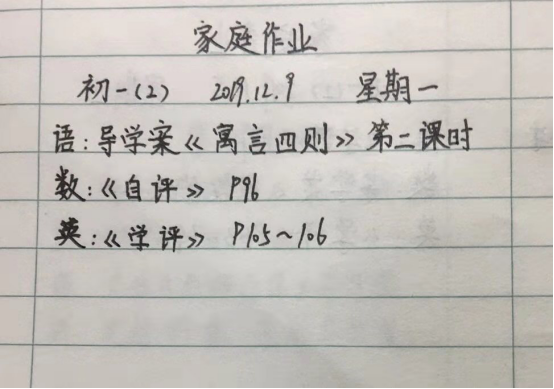 家庭作业
初一(2) 2019.12.9 星期一
语:导学案《寓言四则》第二课时
数:《自评》 P96
英:《学评》 P105~106